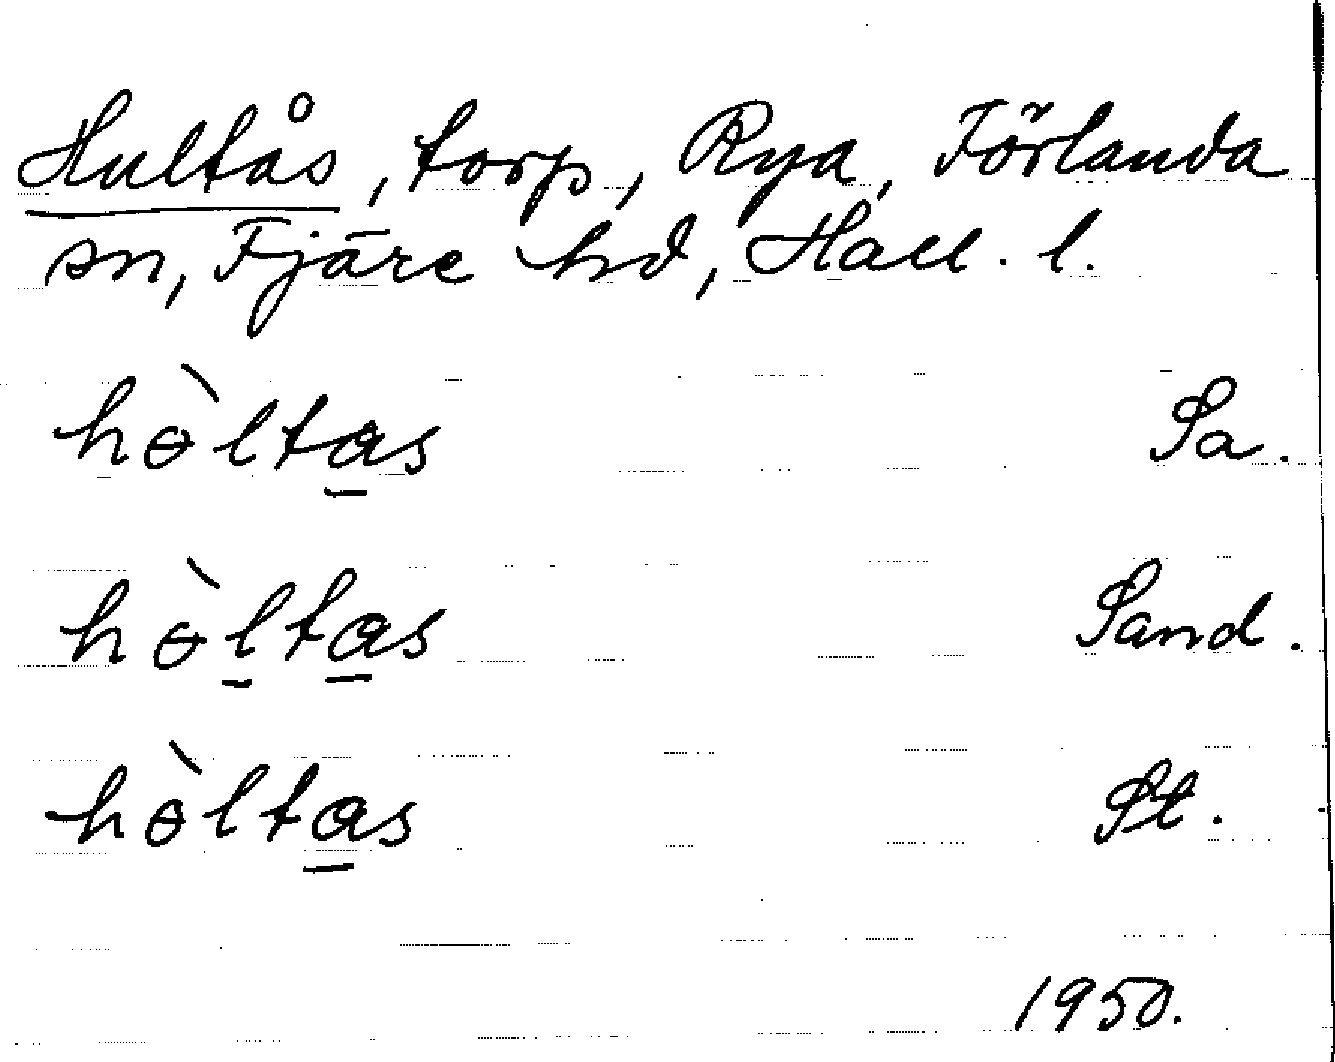 Hultås, torp, Rya, Förlanda
sn, Fjäre hd, Hall. l.
hɵ̀ltas Sa.
hɵ̀ltas Sand.
hɵ̀ltas St.
1950.